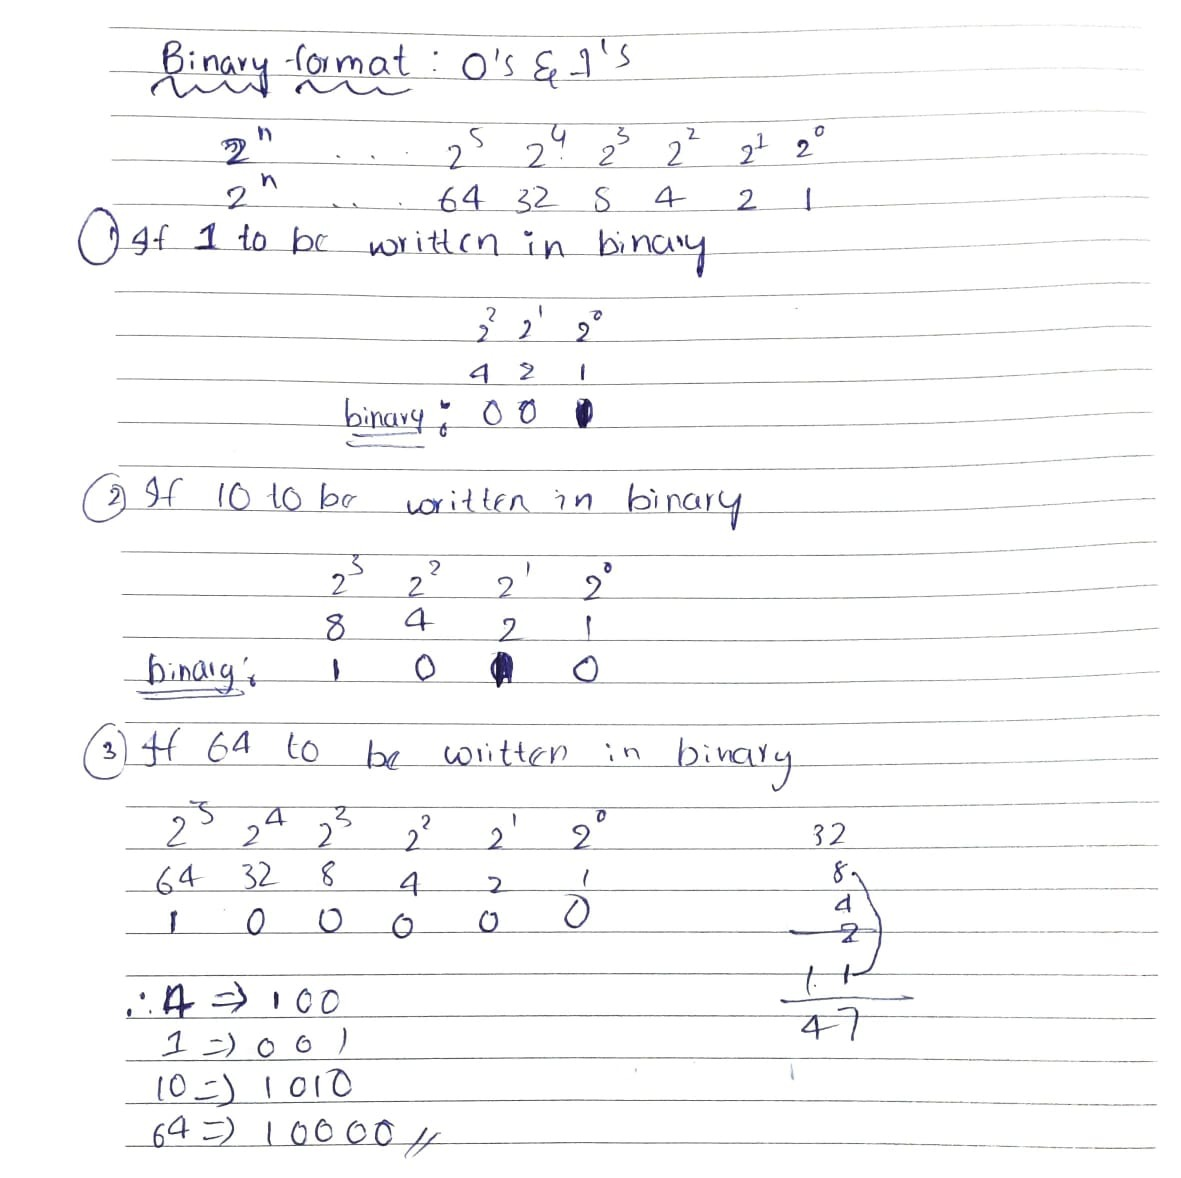 Binary format : 0's & 1's
2ⁿ .... 2⁵ 2⁴ 2³ 2² 2¹ 2⁰
2ⁿ .... 64 32 8 4 2 1
① If 1 to be written in binary
2² 2¹ 2⁰
4 2 1
binary : 0 0 1
② If 10 to be written in binary
2³ 2² 2¹ 2⁰
8 4 2 1
binary : 1 0 1 0
③ If 64 to be written in binary
2⁵ 2⁴ 2³ 2² 2¹ 2⁰
64 32 8 4 2 1
1 0 0 0 0 0
32
8
4
2
1 1
47
∴ 4 ⇒ 100
1 ⇒ 001
10 ⇒ 1010
64 ⇒ 10000 //